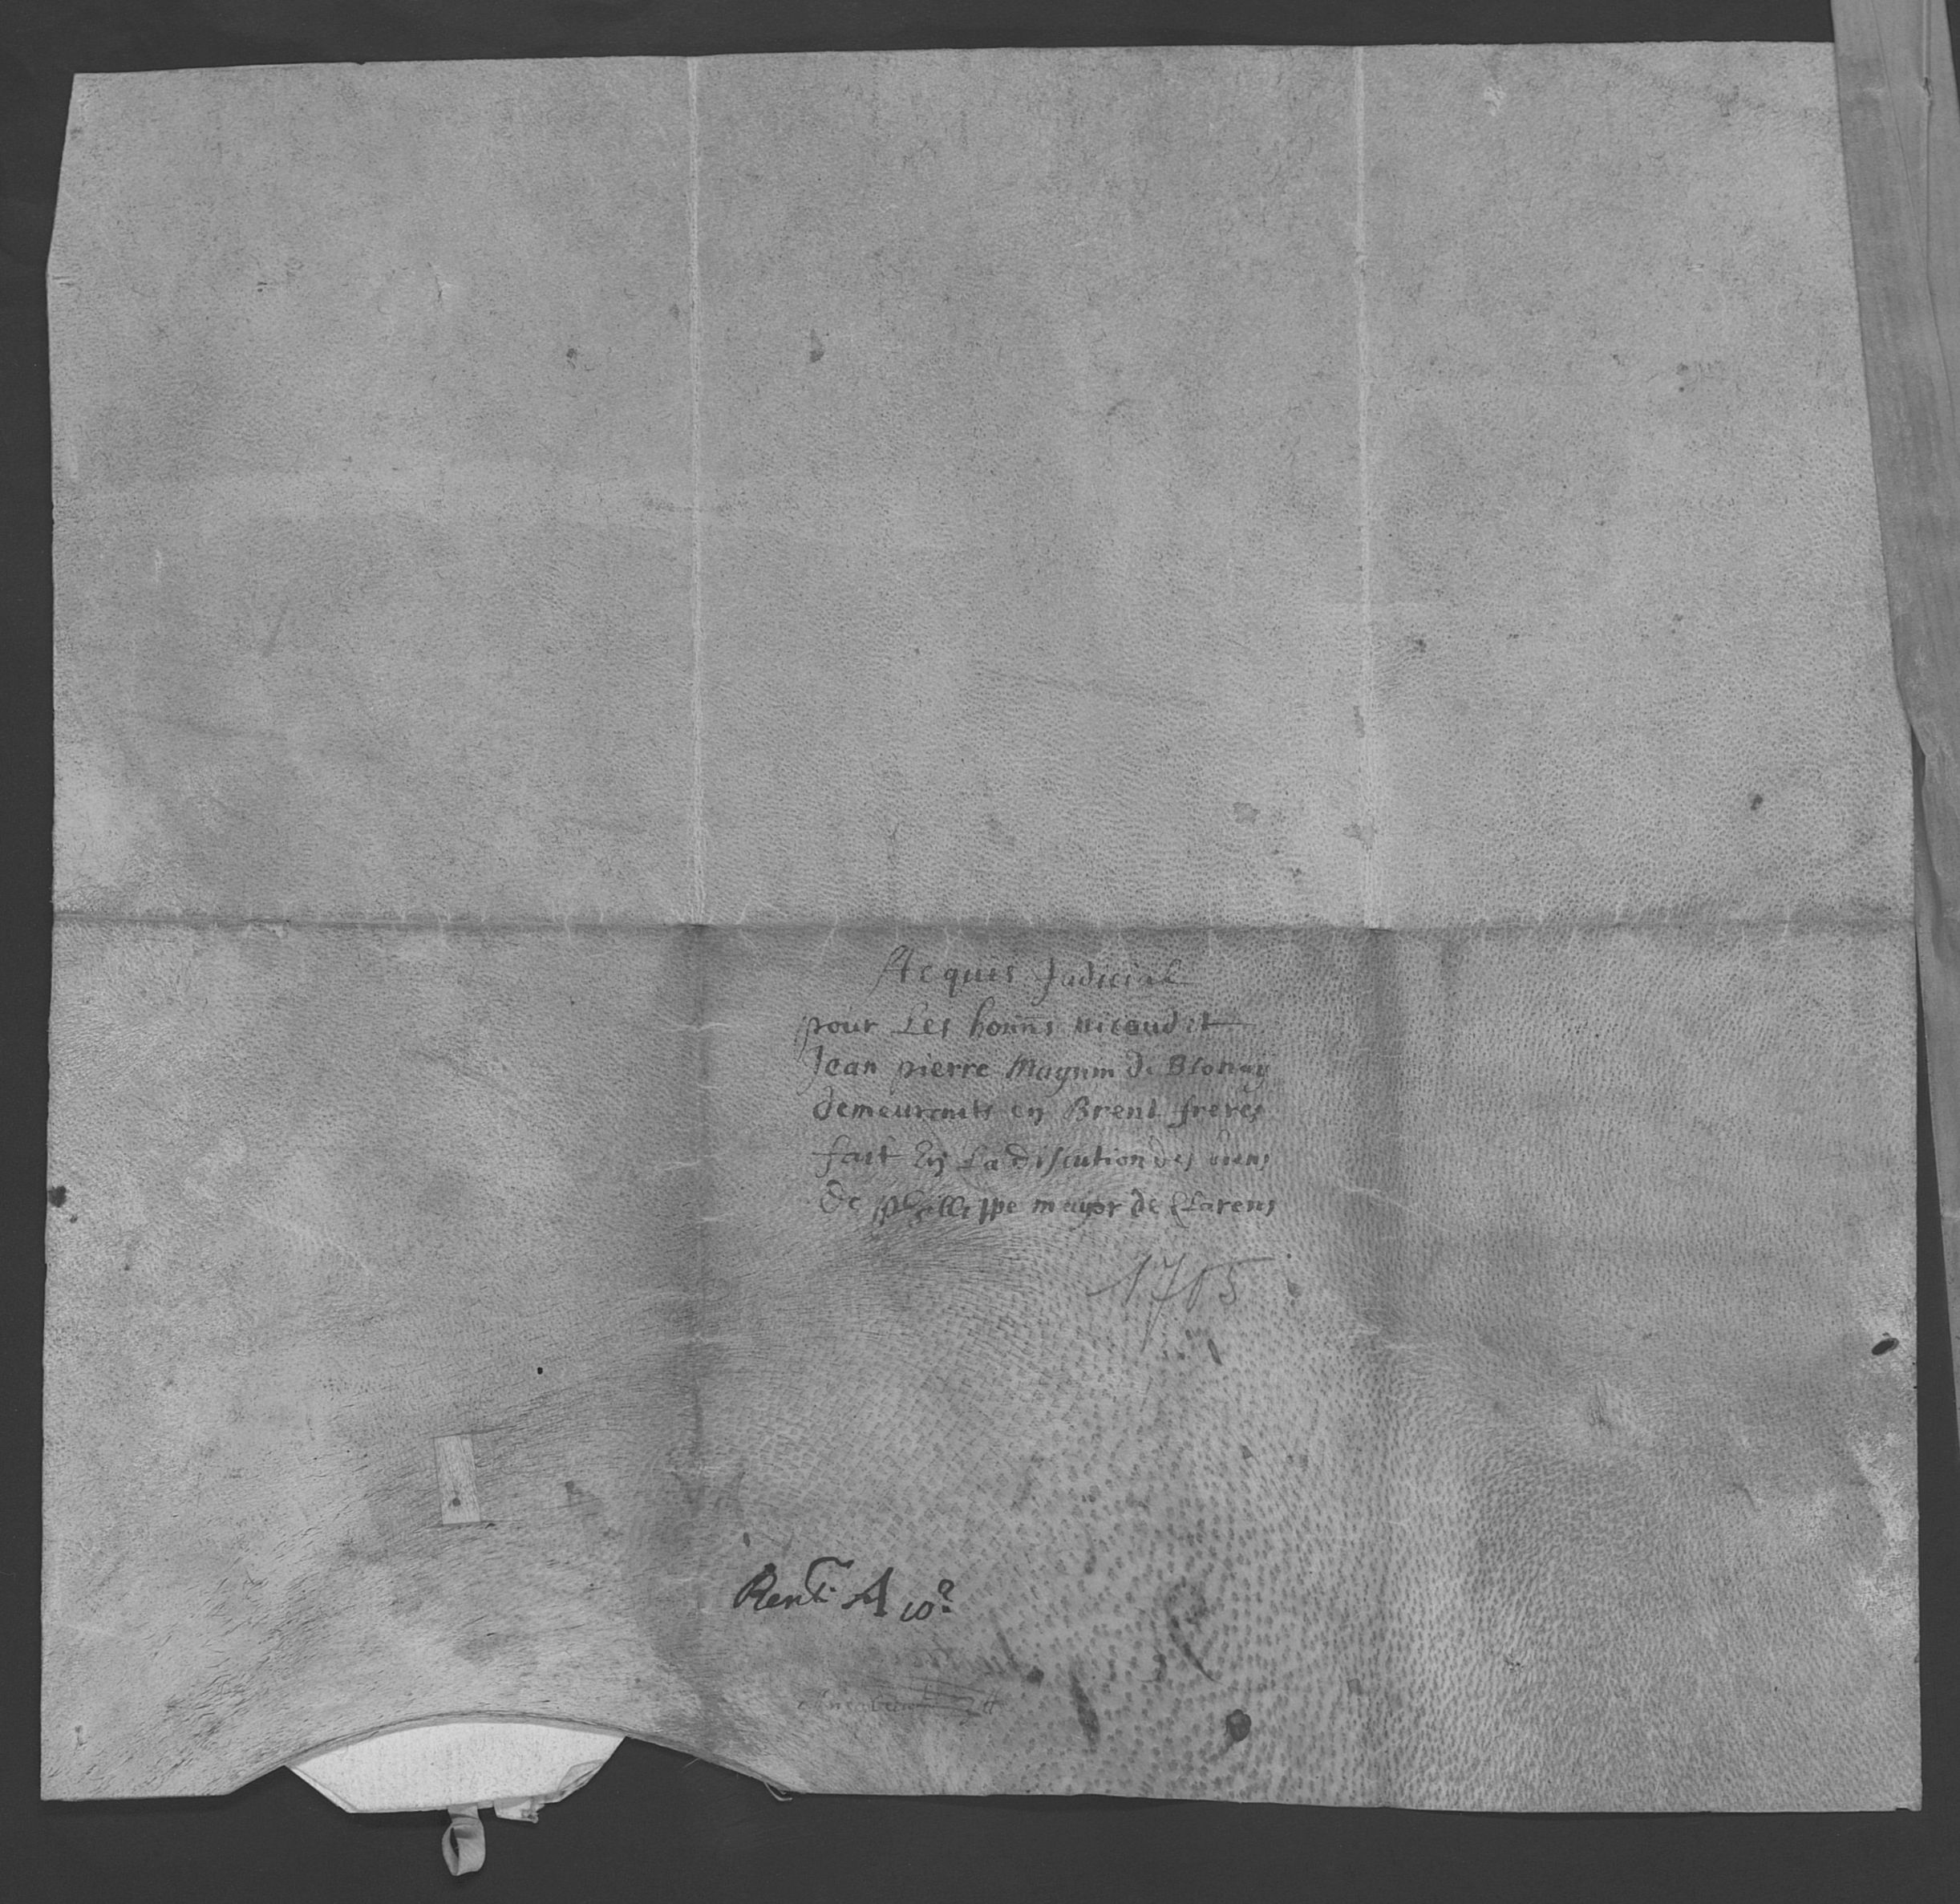 Acquis Judicial
pour Les honn̄s nicoud et
Jean pierre Magnin de Blonay
demeurants en Brent freres
fait En La discution des biens
de phillippe mayor de Clarens
1715